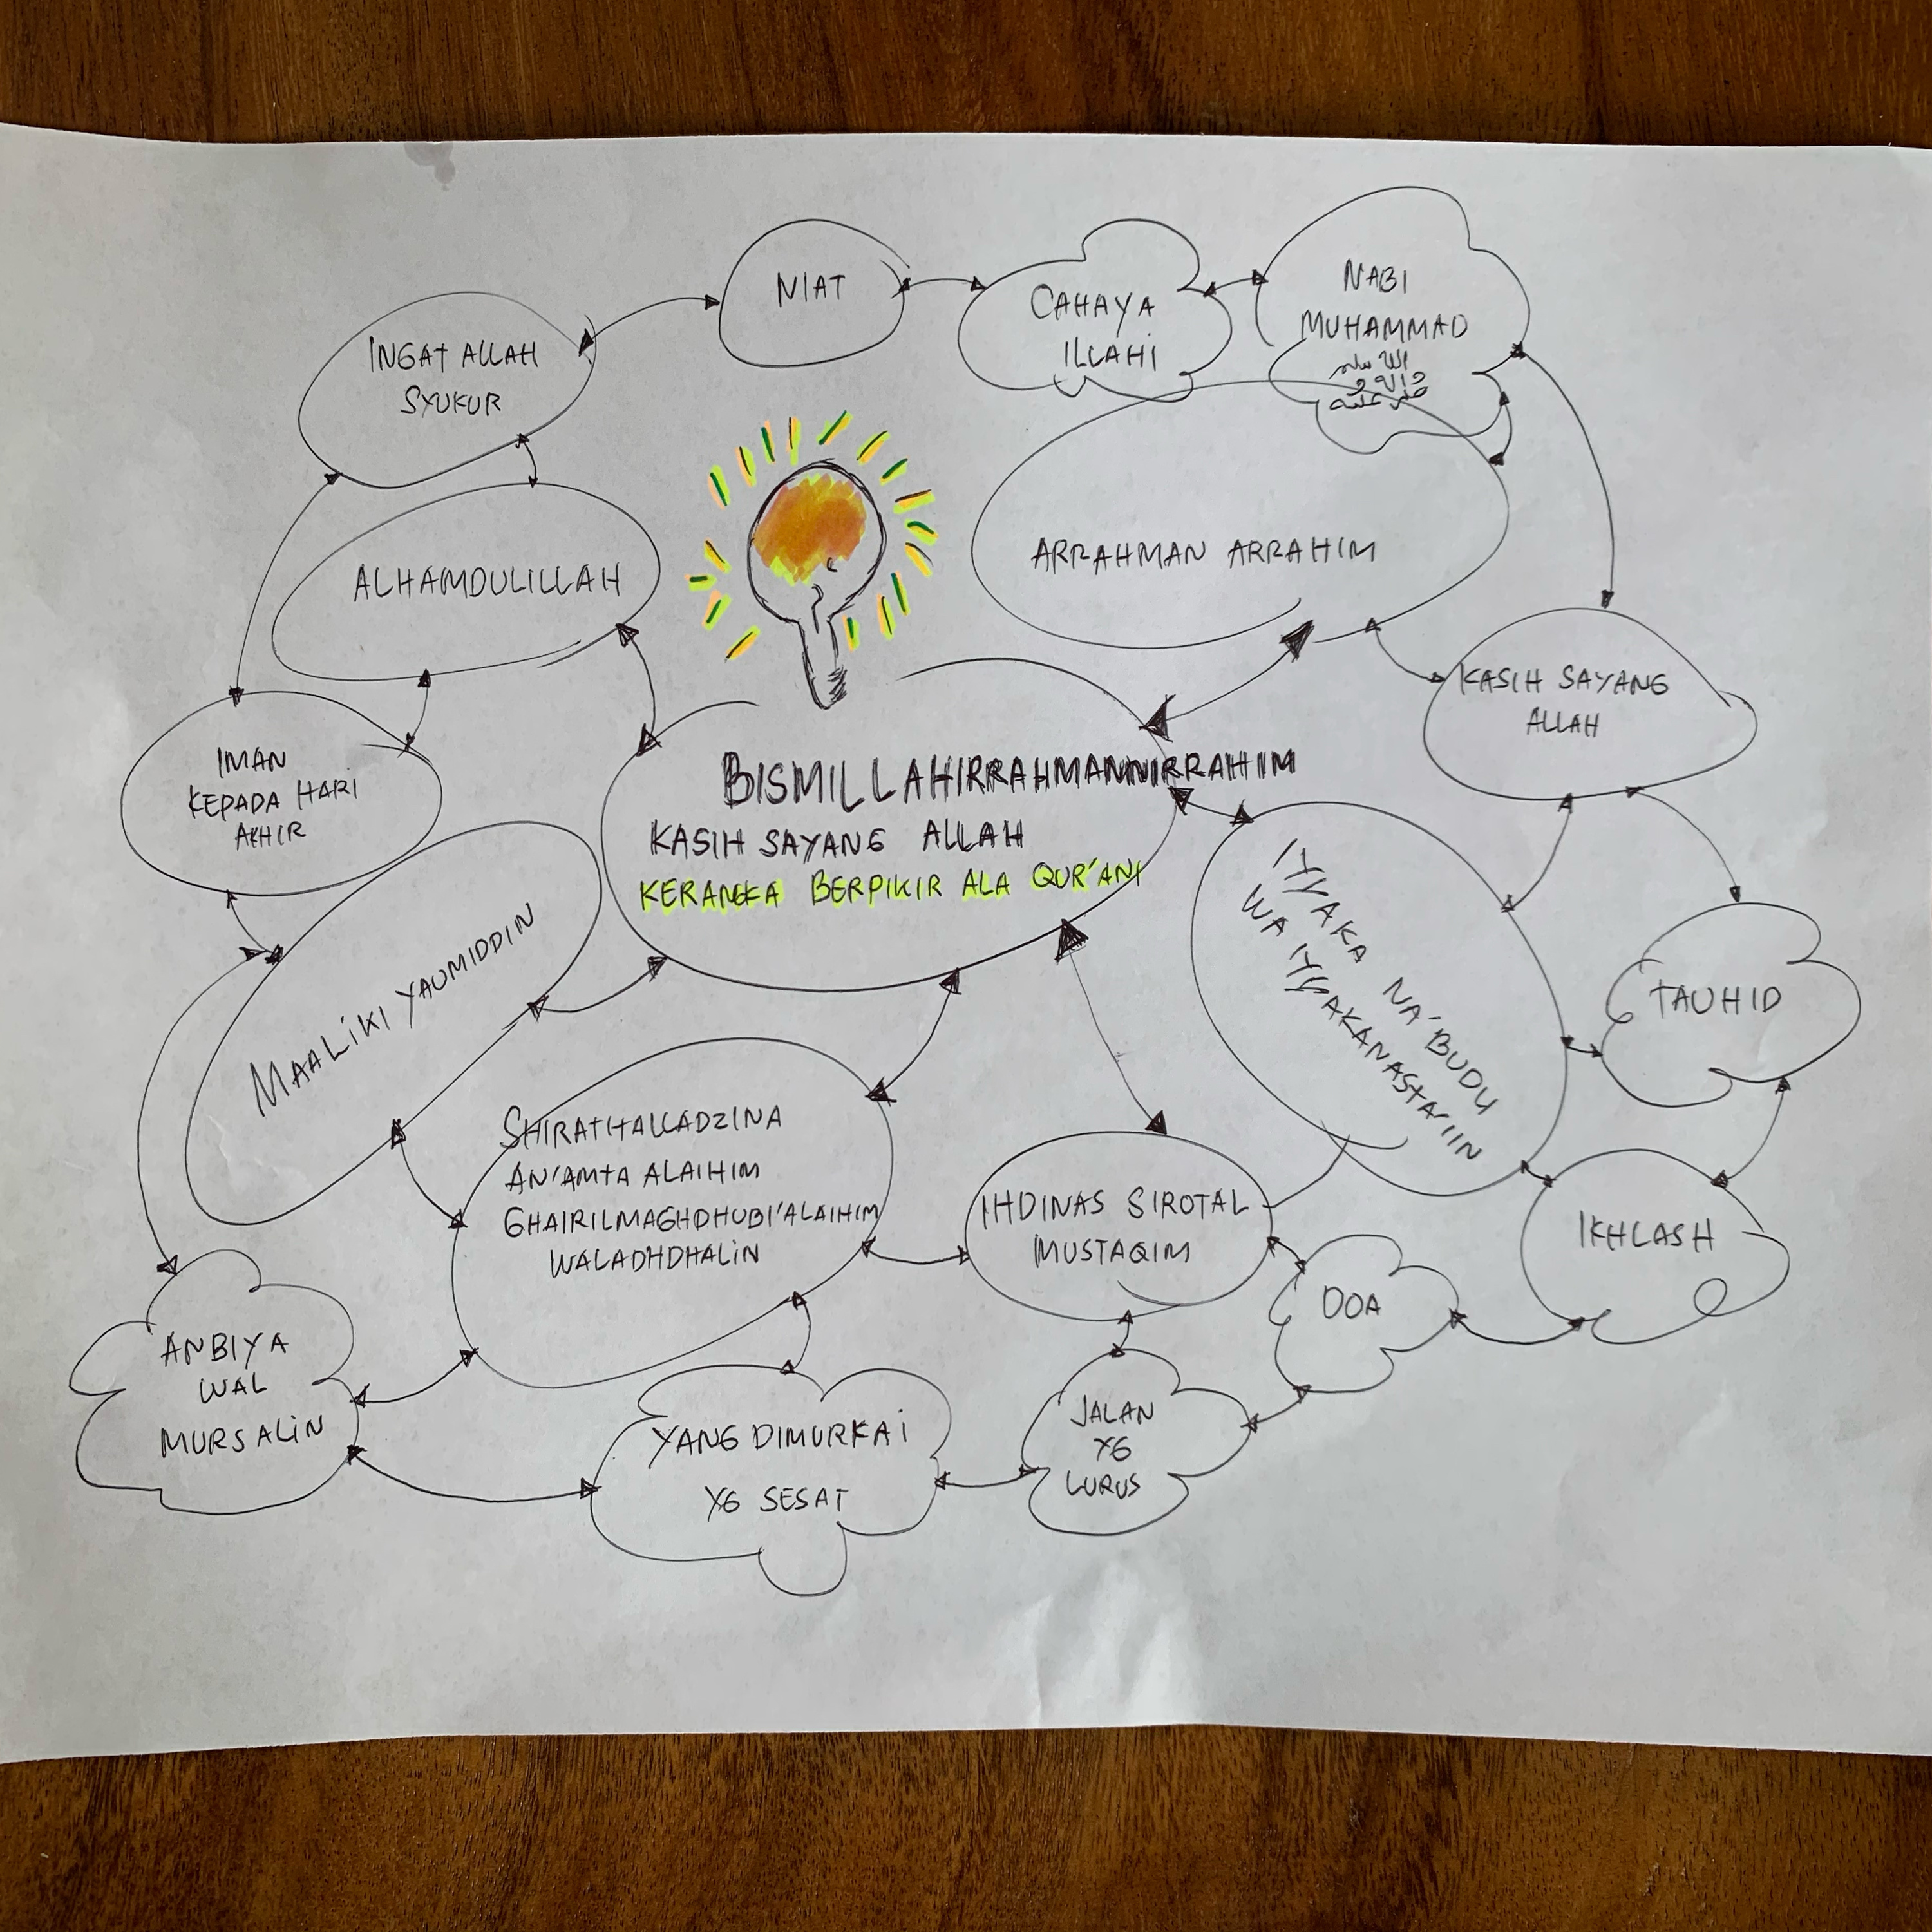 NIAT
CAHAYA
ILLAHI
NABI
MUHAMMAD
INGAT ALLAH
SYUKUR
ALHAMDULILLAH
ARRAHMAN ARRAHIM
KASIH SAYANG
ALLAH
IMAN
KEPADA HARI
AKHIR
BISMILLAHIRRAHMANNIRRAHIM
KASIH SAYANG ALLAH
KERANGKA BERPIKIR ALA QUR'ANI
MAALIKI YAUMIDDIN
IYYAKA NA'BUDU
WA IYYAKANASTA'IIN
TAUHID
SHIRATHALLADZINA
AN'AMTA ALAIHIM
GHAIRILMAGHDHUBI'ALAIHIM
WALADHDHALIN
IHDINAS SIROTAL
MUSTAQIM
IKHLASH
DOA
ANBIYA
WAL
MURSALIN
YANG DIMURKAI
YG SESAT
JALAN
YG
LURUS